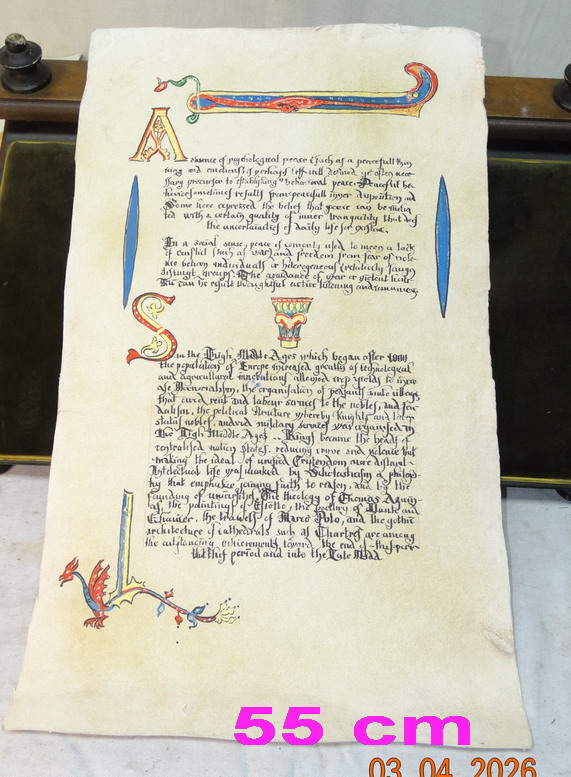 A
absence of psychological peace such as a peacefull thin
king and emotions perhaps ill defined, yet often nece
ssary precursor to establishing "behavioral peace. Peaceful be
haviors sometimes results from peacefull inner disposition
Some have expressed the belief that peace can be initia
ted with a certain quality of inner tranquility that does
the uncertainties of daily life for
In a social sense, peace is commonly used to mean a lack
of conflict (such as war) and freedom from fear of viole
nce between individuals or heterogeneous (relatively
distinct groups). The avoidance of war or violent
can be result thoughtful active listening and
S
in the High Middle Ages which began after 1000
the population of Europe increased greatly as technological
and agricultural innovations allowed crop yields to incre
ase Manorialism, the organisation of peasants into villages
that owed rent and labour services to the nobles, and feu
dalism, the political structure whereby knights and lower
status nobles military services was organised in
the High Middle Ages .. Kings became the heads of
centralised nation States, reducing crime and violence but
making the ideal of unified more distant.
Intellectual life was marked by Scholasticism a philoso
hy that emphasize joining faith to reason, and by the
founding of universities, The theology of Thomas Aquin
as, the paintings of Giotto, the poetry of Dante and
Chaucer, the travels of Marco Polo, and the gothic
architecture of cathedrals such as Chartres are among
the outstanding achievements toward the end of this
this period and into the Late
55 cm
03 04 2026